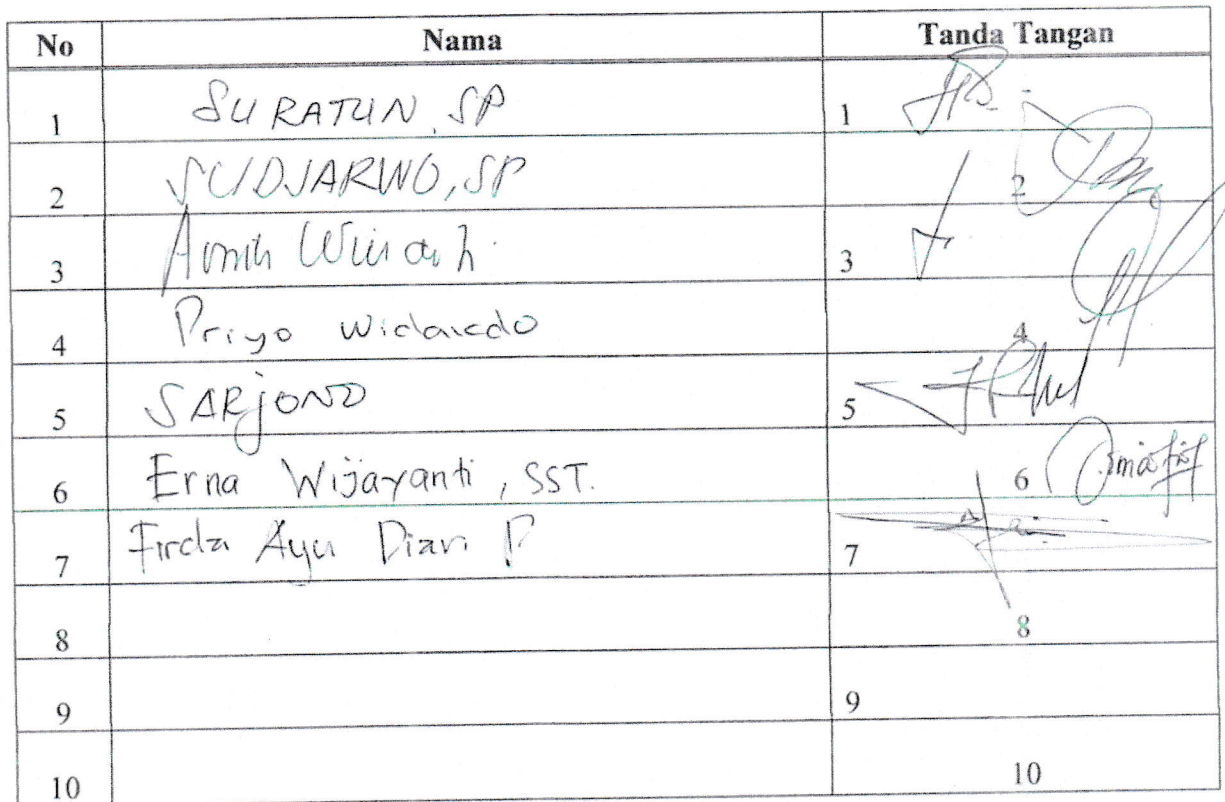 No Nama Tanda Tangan
1 SURATUN, SP 1
2 SUDJARWO, SP 2
3 3
4 Priyo 4
5 SARJONO 5
6 Erna Wijayanti, SST. 6
7 Firda Ayu Dian P 7
8 8
9 9
10 10